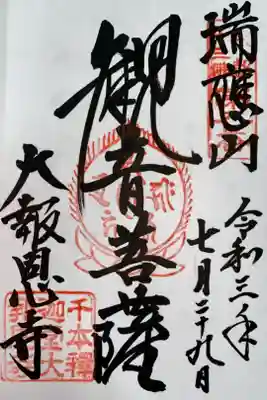 瑞應山
令和三年
七月二十九日
観音菩薩
大報恩寺
千本釋
迦堂大